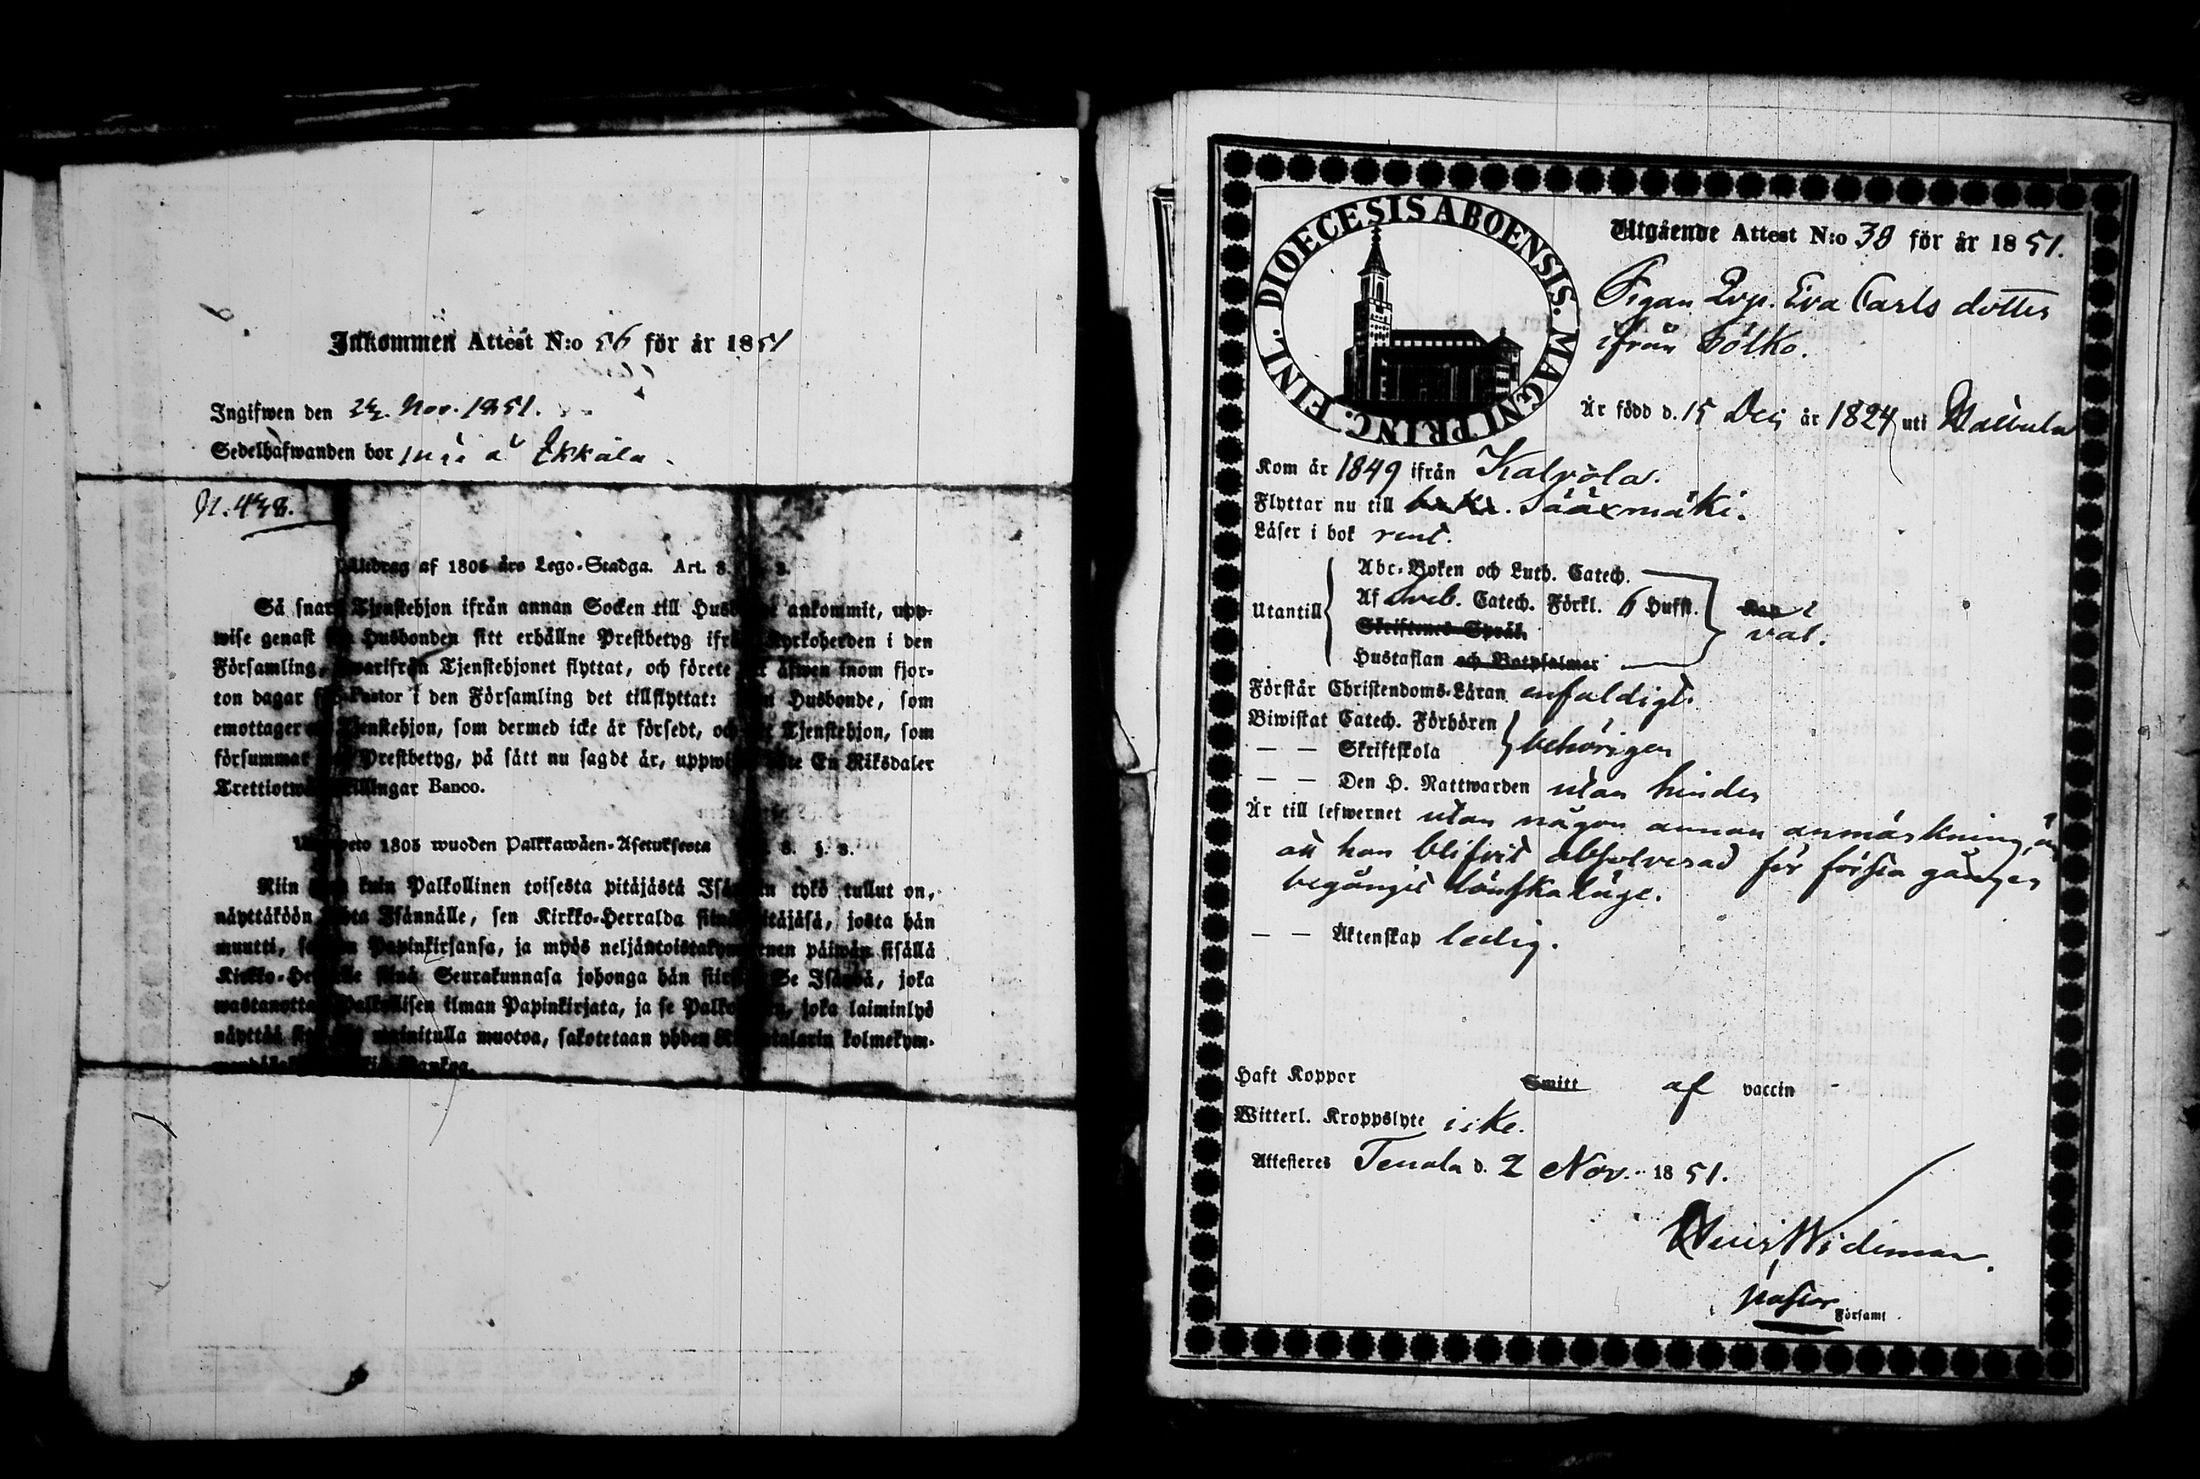 Inkommen Attest N:o 56 för år 1851
Ingifwen den 22. Nov. 1851.
Sedelhafwanden bor på Ekkala.
N. 438.
Utdrag af 1805 års Lego-Stadga. Art. 8. 3.
Så snart Tjenstehjon ifrån annan Socken till ankommit, upp-
wise genast Husbonden sitt erhållne Prestbetyg ifrån Kyrkoherden i den
Församling, hwarifrån Tjenstehjonet flyttat, och förete äfwen inom fjor-
ton dagar för Pastor i den Församling det tillflyttat: Husbonde, som
emottager Tjenstehjon, som dermed icke är försedt, och Tjenstehjon, som
försummar Prestbetyg, på sätt nu sagdt är, uppwisa, böte En Riksdaler
Trettiotwå Skillingar Banco.
1805 wuoden Palkkawäen-Asetuksesta 8. §. 3.
Niin kuin Palkollinen toisesta pitäjästä Isännän tykö tullut on,
näyttäköön Isännälle, sen Kirkko-Herralda siinä pitäjäsä, josta hän
muutti, Papinkirjansa, ja myös neljäntoistakymmenen päiwän sisällä
Kirkko-Herralle siinä Seurakunnasa johonga hän siirtyi: Se Isändä, joka
wastanottaa Palkollisen ilman Papinkirjata, ja se Palkollinen, joka laiminlyö
näyttää mainitulla muotoa, sakotetaan yhden Riksitalarin kolmekym-
Utgående Attest N:o 38 för år 1851.
DIOECESIS ABOENSIS. MAGNI PRINC. FINL.
Pigan Eva Carls dotter
ifrån Bölko.
Är född d. 15 Dec år 1824 uti
Kom år 1849 ifrån Kalvola.
Flyttar nu till Sääxmäki.
Läser i bok rent.
Abc-Boken och Luth. Catech.
Utantill Af Sveb. Catech. Förkl. 6 Hufst. Kan
Skriftenes Språk. väl.
Hustaflan och Botpsalmer
Förstår Christendoms-Läran enfaldigt.
Biwistat Catech. Förhören
— — Skriftskola behörigen
— — Den H. Nattwarden utan hinder
Är till lefwernet utan någon annan anmärkning, än
att hon blifvit absolverad för första gången
begånget lönskaläge.
— — Äktenskap ledig.
Haft Koppor Smitt af vaccin
Witterl. Kroppslyte icke.
Attesteres Tenala d. 2 Nov. 1851.
Wideman.
pastor
Församl.